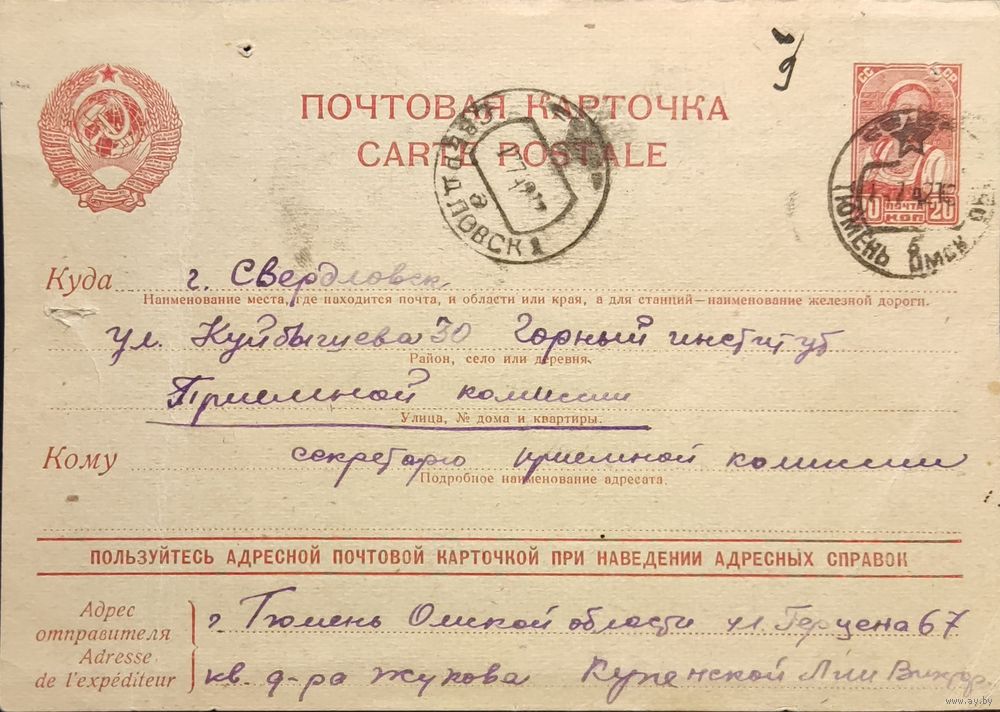 ПОЧТОВАЯ КАРТОЧКА
CARTE POSTALE
СС СР
ПОЧТА
20 КОП 20
СВЕРДЛОВСК
ТЮМЕНЬ ОМСК
б
Куда г. Свердловск
Наименование места, где находится почта, и области или края, а для станций—наименование железной дороги.
ул. Куйбышева 30 Горный институт
Район, село или деревня.
Приемной комиссии
Улица, № дома и квартиры.
Кому секретарю приемной комиссии
Подробное наименование адресата.
ПОЛЬЗУЙТЕСЬ АДРЕСНОЙ ПОЧТОВОЙ КАРТОЧКОЙ ПРИ НАВЕДЕНИИ АДРЕСНЫХ СПРАВОК
Адрес отправителя
Adresse de l'expéditeur
г Тюмень Омской области ул. Герцена 67
кв. д-ра Жукова Лии Виктор.
www.ay.by